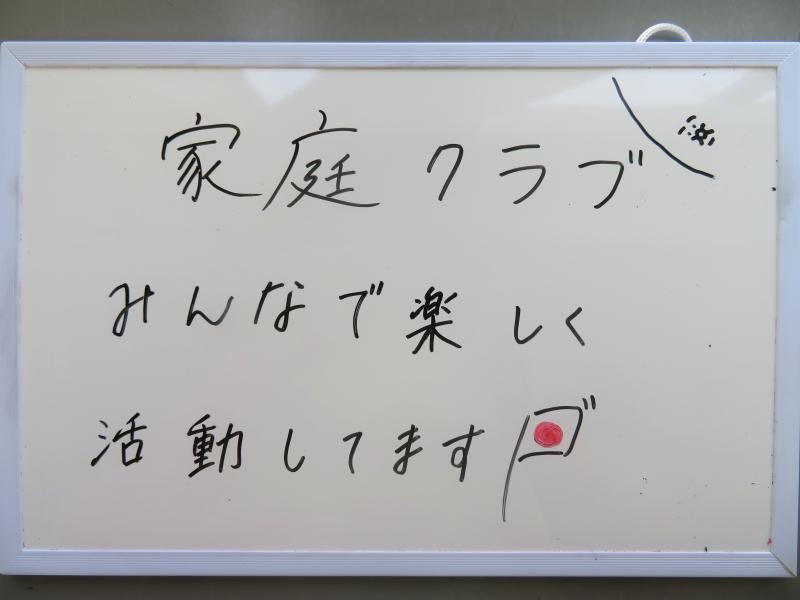 家庭クラブ
みんなで楽しく
活動してます